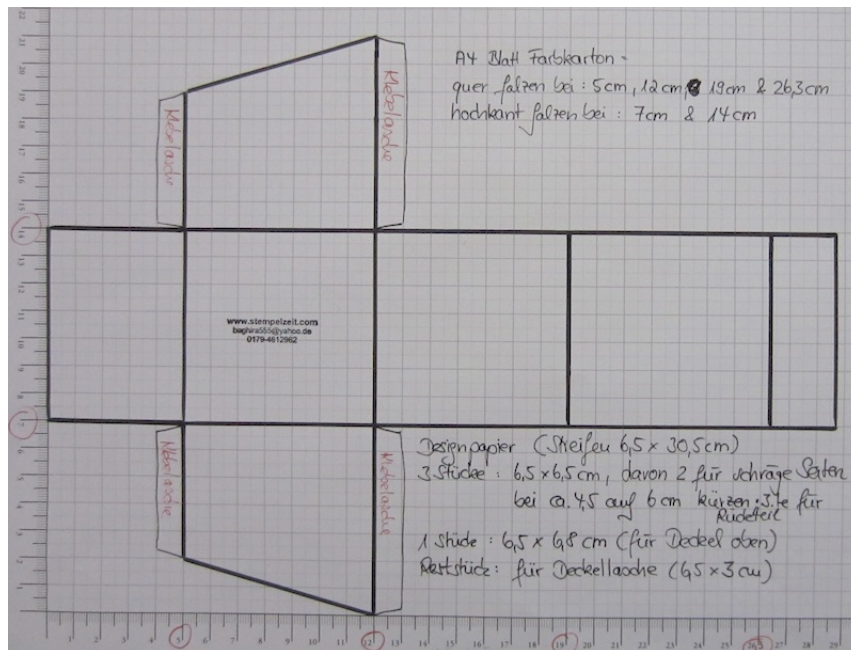 A4 Blatt Farbkarton -
quer falzen bei : 5cm, 12cm, 19cm & 26,3cm
hochkant falzen bei : 7cm & 14cm
Klebelasche
Klebelasche
www.stempelzeit.com
baghira555@yahoo.de
0179-4612962
Klebelasche
Klebelasche
Designpapier (Streifen 6,5 x 30,5cm)
3 Stücke : 6,5 x 6,5cm, davon 2 für schräge Seiten
bei ca. 4,5 auf 6 cm kürzen, 3.te für
Rückteil
1 Stück : 6,5 x 6,8 cm (für Deckel oben)
Reststück : für Deckellasche (6,5 x 3 cm)
22
21
20
19
18
17
16
15
14
13
12
11
10
9
8
7
6
5
4
3
2
1
1 2 3 4 5 6 7 8 9 10 11 12 13 14 15 16 17 18 19 20 21 22 23 24 25 26,3 27 28 29